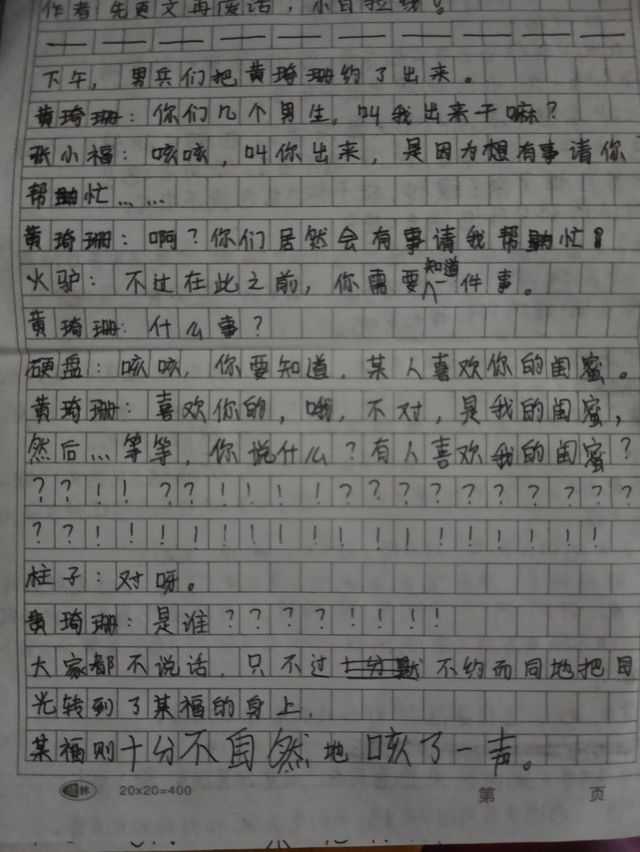 作者：先更文再废话，小白拉线。
下午，男兵们把黄琦珊约了出来。
黄琦珊：你们几个男生，叫我出来干嘛？
张小福：咳咳，叫你出来，是因为想有事请你
帮助忙……
黄琦珊：啊？你们居然会有事请我帮助忙！
火驴：不过在此之前，你需要知道一件事。
黄琦珊：什么事？
硬盘：咳咳，你要知道，某人喜欢你的闺蜜。
黄琦珊：喜欢你的，哦，不对，是我的闺蜜，
然后…等等，你说什么？有人喜欢我的闺蜜？
??!!??!!!!??????????
??!!!!!!!!!!!!!!!!!
柱子：对呀。
黄琦珊：是谁????!!!!
大家都不说话，只不过十分默不约而同地把目
光转到了某福的身上，
某福则十分不自然地咳了一声。
林 20×20=400 第 页